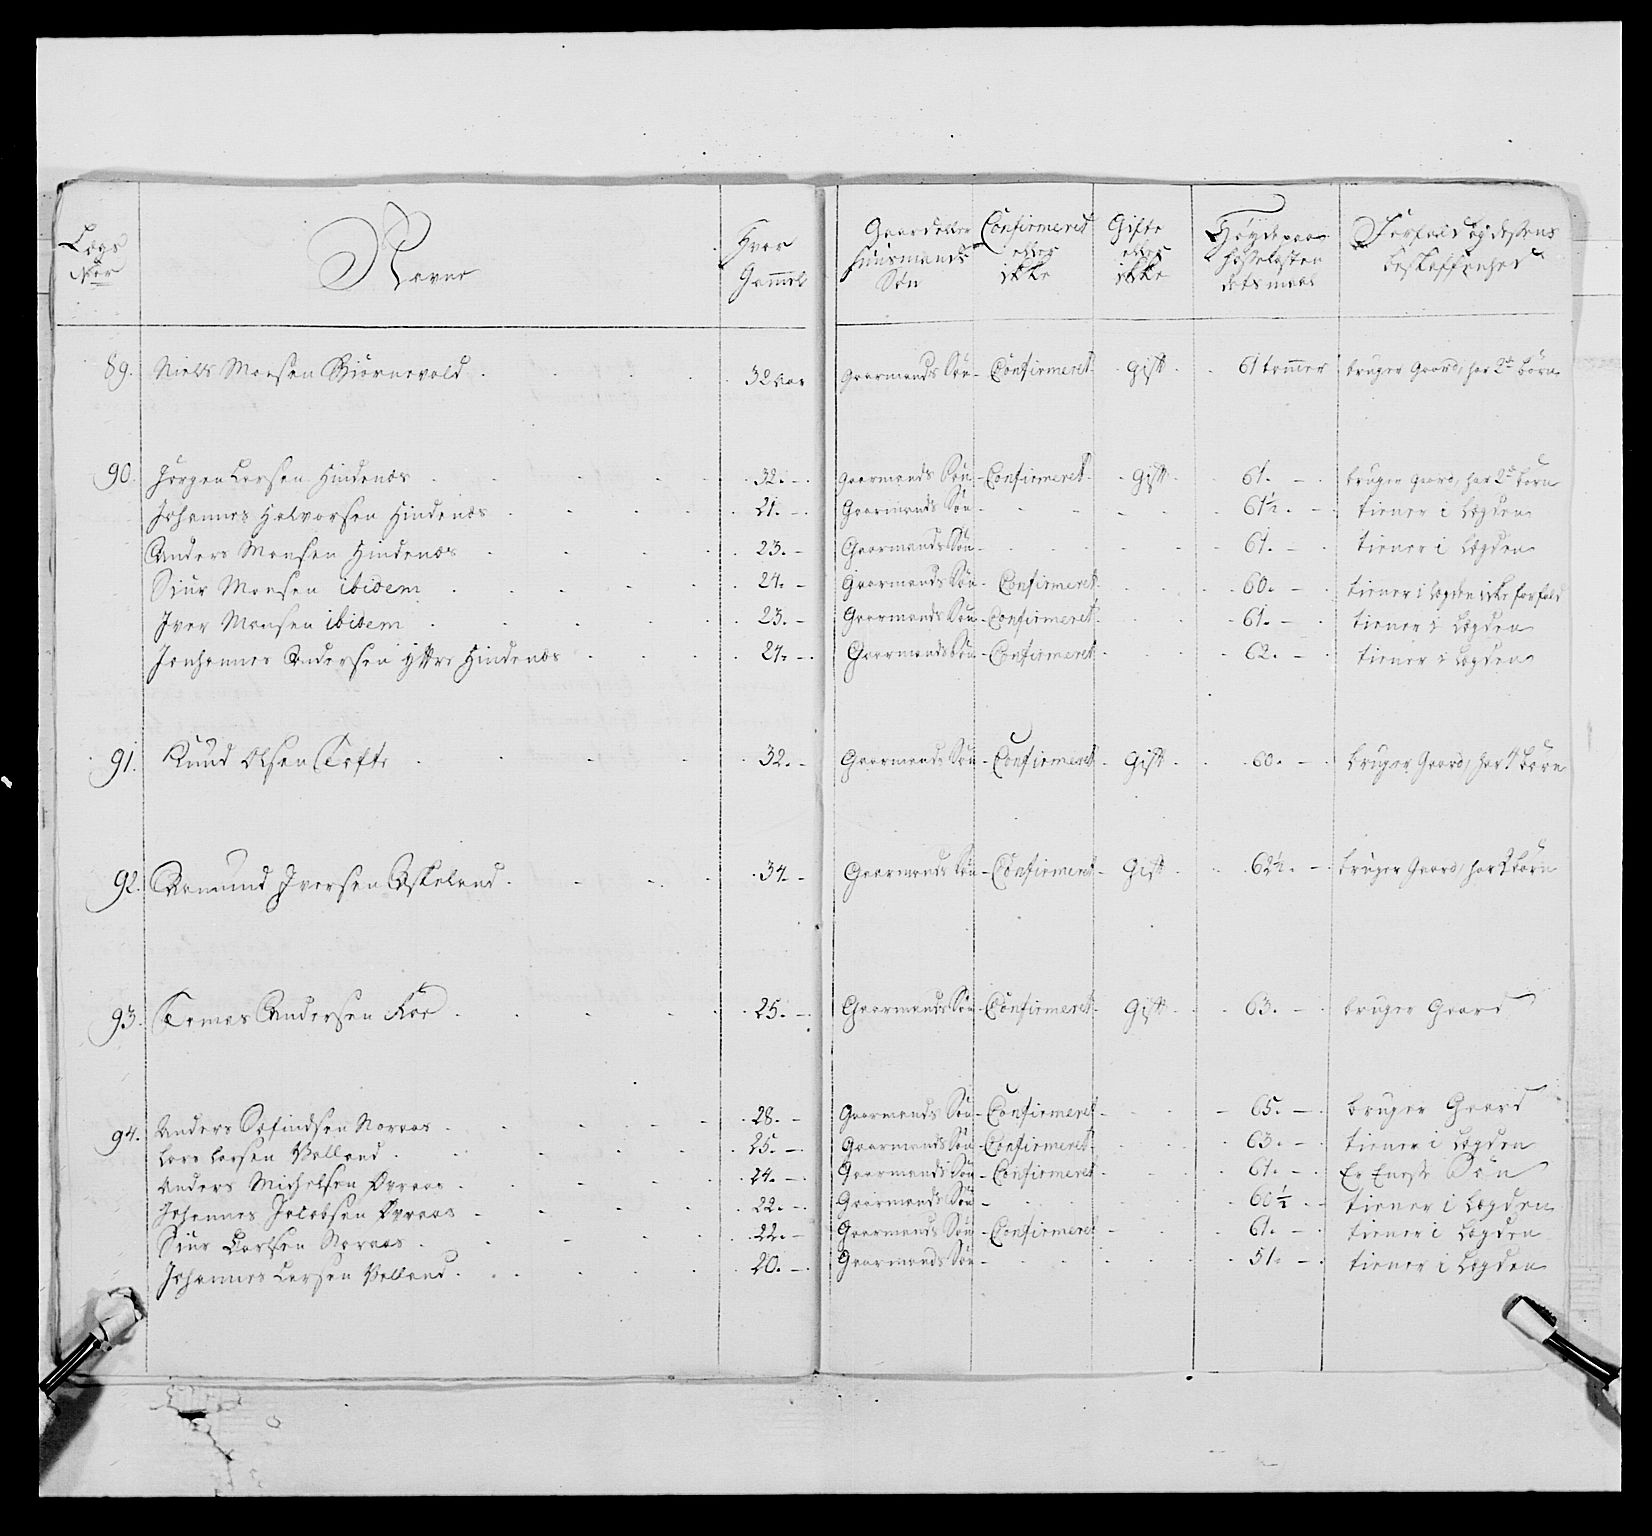 Lægs No Navne Hvor Gammel Gaard eller Huusmands Søn Confirmeret eller ikke Gifte eller ikke Høyde paa Hosselæsten dets maal Forfald og dessens beskaffenhed
89. Niels Monsen Biørnevold 32 Aar Gaarmands Søn Confirmeret gift 61 tommer bruger Gaard, har 2de børn
90. Jørgen Larsen Hindenæs 32. Gaarmands Søn Confirmeret gift 61. bruger gaard, har 2de børn
Johannes Halvorsen Hindenæs 21. Gaarmands Søn 61½. tiener i Lægden
Anders Monsen Hindenæs 23. Gaarmands Søn 61. tiener i Lægden
Siur Monsen ibidem 24. Gaarmands Søn Confirmeret 60. tiener i Lægden icke forfald
Iver Monsen ibidem 23. Gaarmands Søn Confirmeret 61. tiener i Lægden
Johannes Andersen Yttre Hindenæs 24. Gaarmands Søn Confirmeret 62. tiener i Lægden
91. Knud Olsen Tofte 32. Gaarmands Søn Confirmeret gift 60. bruger Gaard, har 4 børn
92. Aamund Iversen Askeland 34 Gaarmands Søn Confirmeret gift 62½. bruger Gaard, har børn
93. Tomas Andersen 25. Gaarmands Søn Confirmeret gift 63. bruger Gaard
94. Anders Niraas 28. Gaarmands Søn Confirmeret 65. bruger Gaard
Lars Larsen Valland 25. Gaarmands Søn Confirmeret 63. tiener i Lægden
Anders Michelsen Dyraas 24. Gaarmands Søn Confirmeret 61. Er Eneste Søn
Johannes Jacobsen Dyraas 22. Gaarmands Søn 60½ tiener i Lægden
Siur Carlsen 22. Gaarmands Søn Confirmeret 61. tiener i Lægden
Johannes Larsen Valland 20. Gaarmands Søn 51. tiener i Lægden